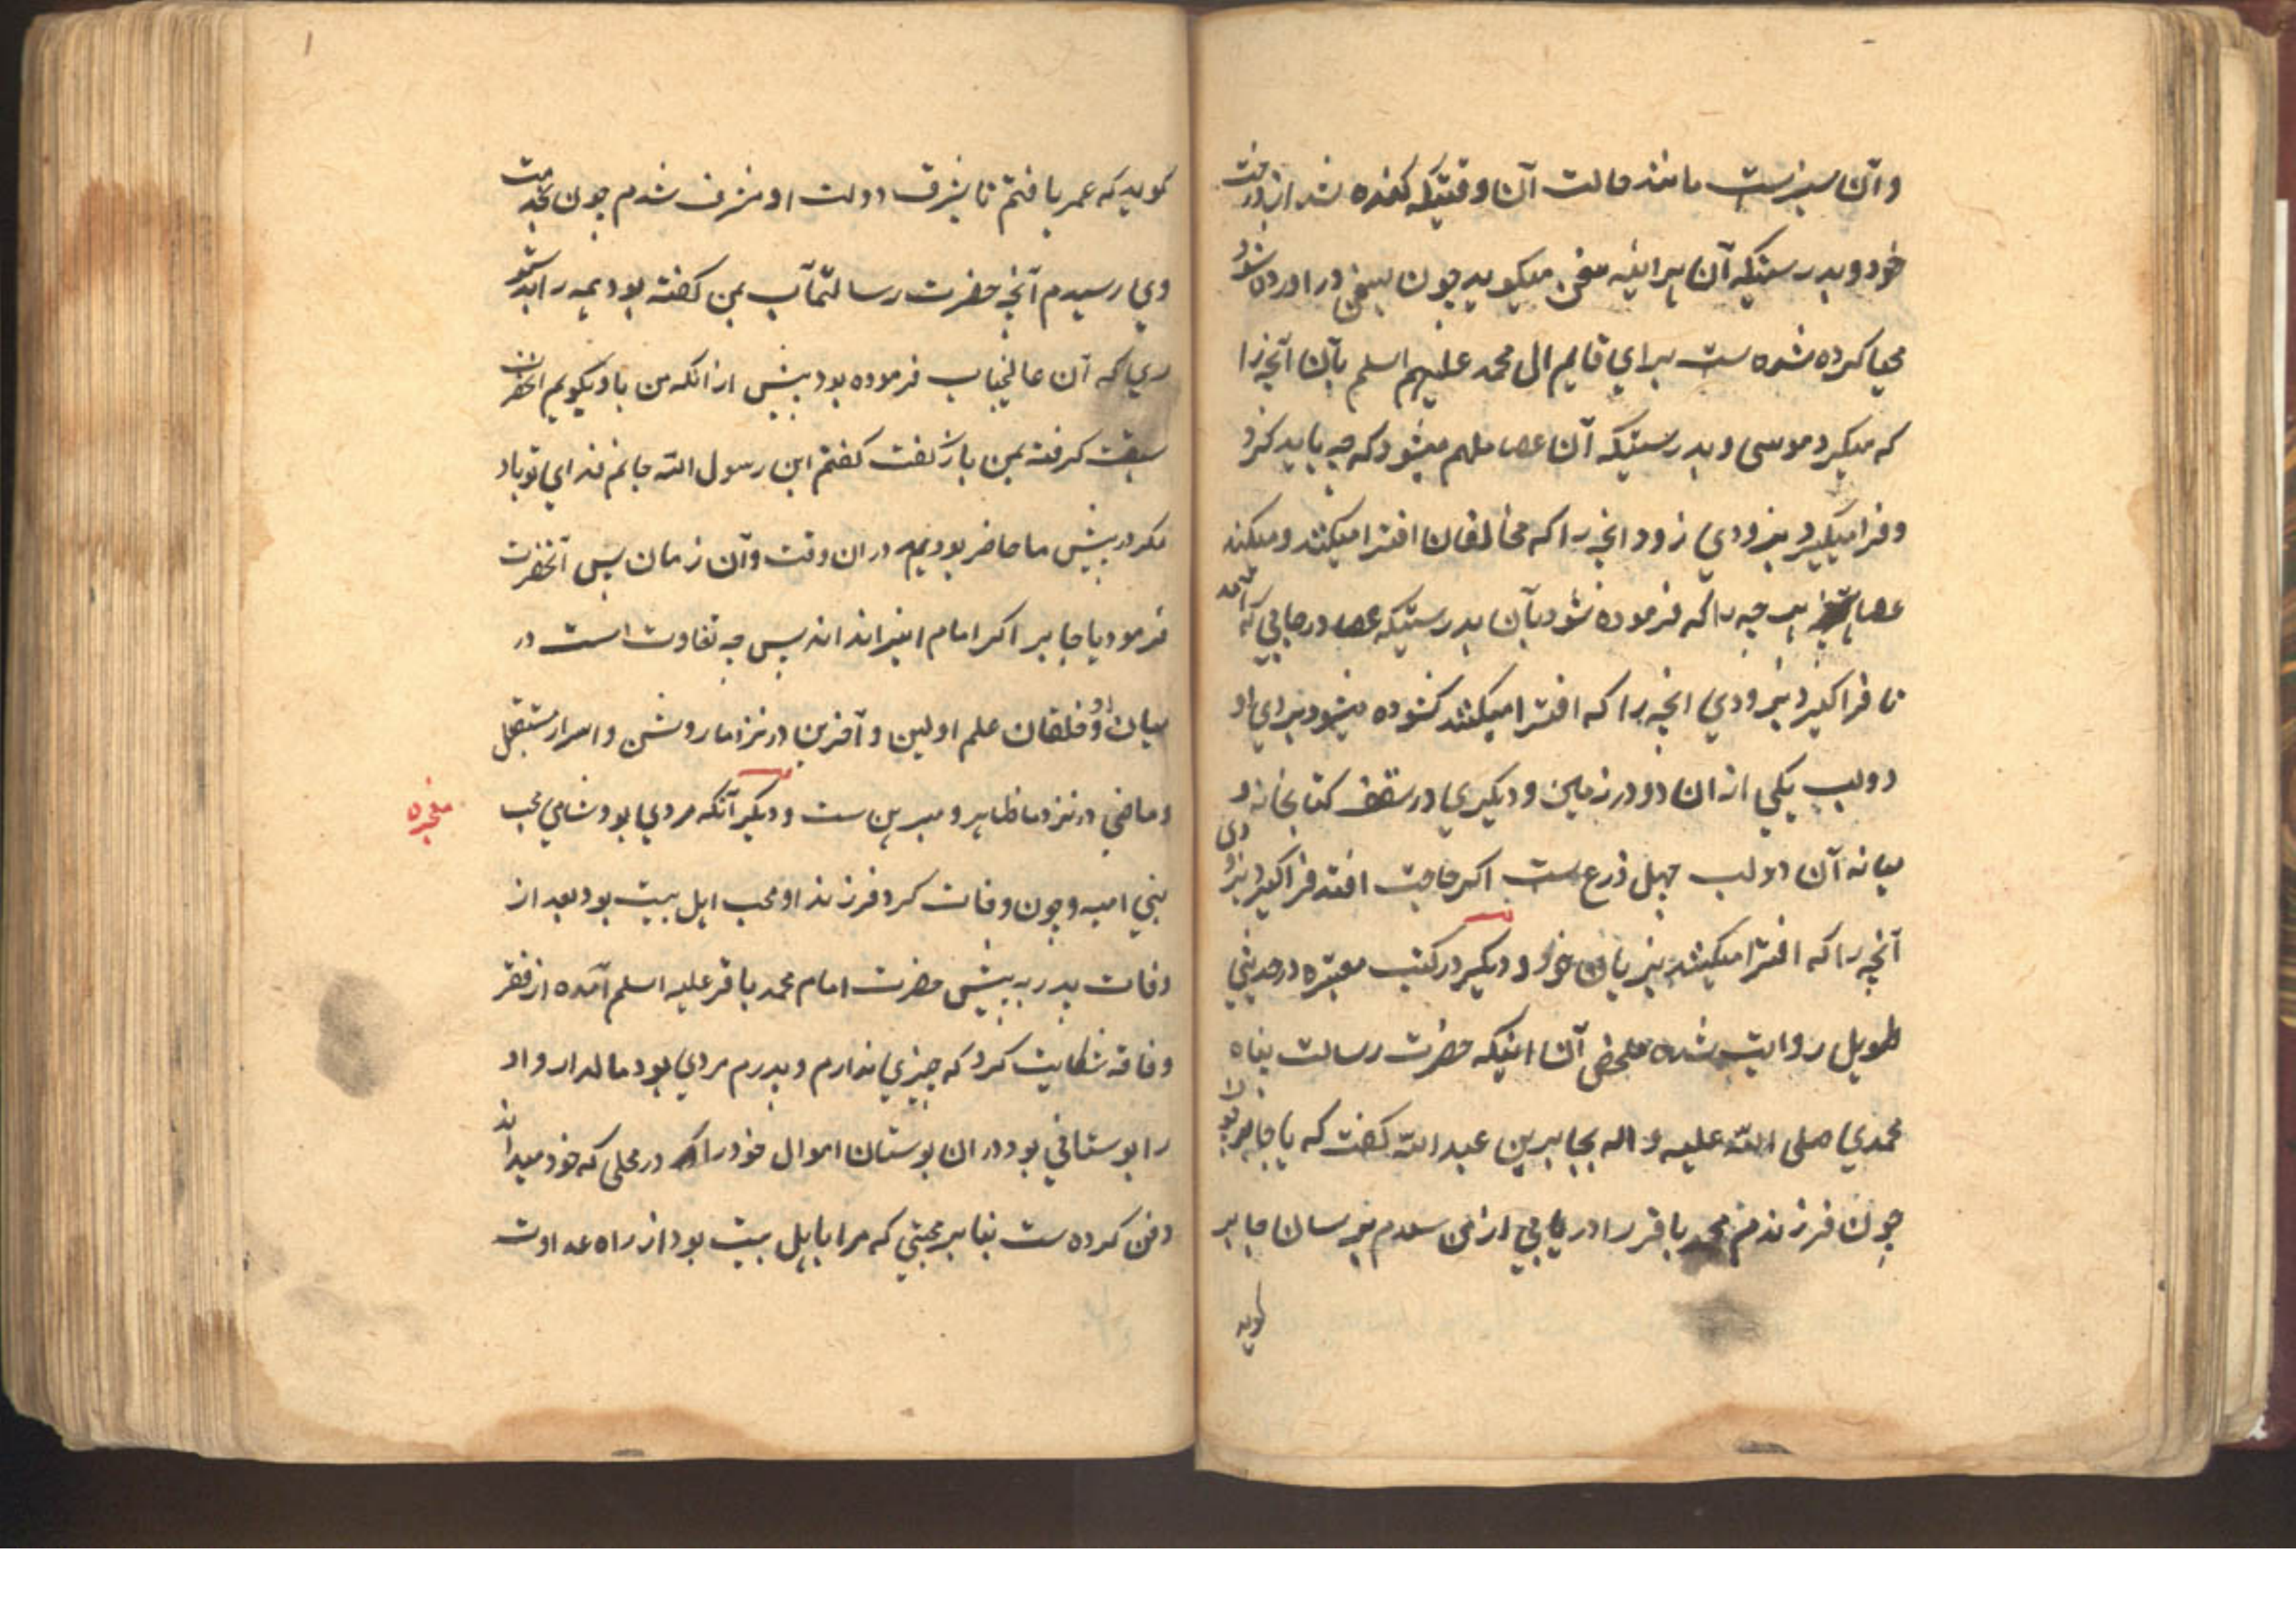 وآن سبزست مانند حالت آن وقتیکه کنده شد از درخت
خود و بدرستیکه آن هراینه سخن میکوید چون بسخن در اورده شود
مهیا کرده شده ست برای قایم ال محمد علیهم اسلم بآن آنچه را
که میکرد موسی و بدرستیکه آن عصا ملهم میشود که چه باید کرد
و فرا میگیرد بزودی زود انچه را که مخالفان افترا میکنند و میکند
عصا هر چه را که فرموده شود بآن بدرستیکه عصا در جایی که آمد
تا فرا کیرد بزودی انچه را که افترا میکنند کشوده میشود برای او
دو لب یکی از ان دو در زمین و دیکری در سقف کتابخانه و
میانه آن دو لب چهل ذرع ست اکر حاجت افتد فرا کیرد بزودی
آنچه را که افترا میکنند بزبان خود و دیکر در کتب معتبره در حدیثی
طویل روایت شده ملخص آن اینکه حضرت رسالت پناه
محمدی صلی الله علیه و اله بجابر بن عبد الله کفت که یا جابر تو
چون فرزند من محمد باقر را در یابی از من سلام برسان جابر
کوید
کوید که عمر یافتم تا بشرف دولت او مشرف شدم چون بخدمت
وی رسیدم آنچه حضرت رسالتمآب بمن کفته بود همه را بدستو
ری که آن عالیجناب فرموده بود پیش از انکه من باو بکویم انحضرت
سبقت کرفته بمن باز کفت کفتم ابن رسول الله جانم فدای تو باد
مکر در پیش ما حاضر بودیم در ان وقت وآن زمان پس آنحضرت
فرمود یا جابر اکر امام اینرا نداند پس چه تفاوت است در
میان او و خلقان علم اولین و آخرین در نزد ما روشن و اسرار مستقبل
و ماضی در نزد ما ظاهر و مبرهن ست و دیکر آنکه مردی بود شامی محب
معجزه
بنی امیه و چون وفات کرد فرزند او محب اهل بیت بود بعد از
وفات پدر به پیش حضرت امام محمد باقر علیه اسلم آمده از فقر
و فاقه شکایت کرد که چیزی ندارم و پدرم مردی بود مالدار و او
را بوستانی بود در ان بوستان اموال خود را در محلی که خود میداند
دفن کرده ست بنا بر محبتی که مرا باهل بیت بود از راه عداوت